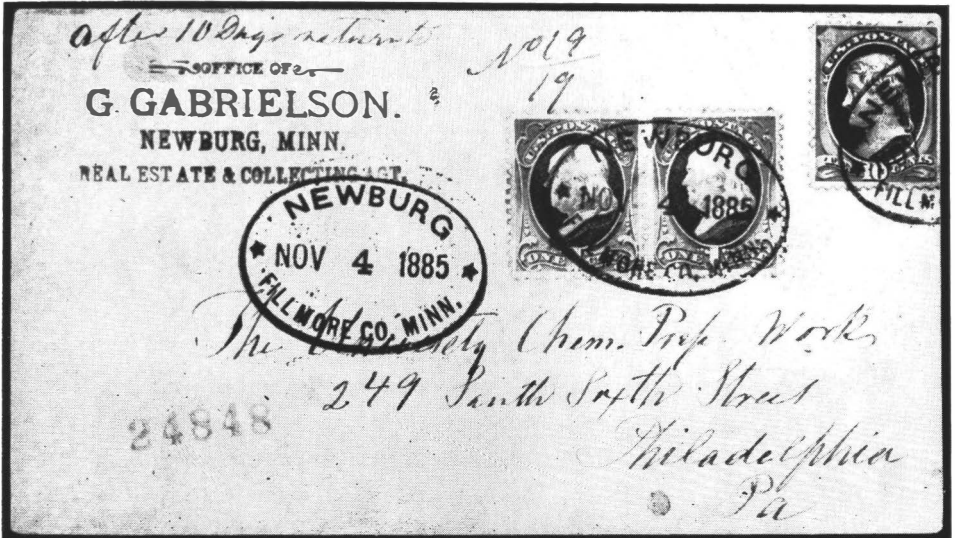 after 10 Days return to
OFFICE OF
G. GABRIELSON.
NEWBURG, MINN.
REAL ESTATE & COLLECTING AGT.
No 19
19
U.S. POSTAGE
NEWBURG
NOV 4 1885
FILLMORE CO. MINN.
NEWBURG
NOV 4 1885
FILLMORE CO. MINN.
FILLM
The Chem. Prep. Work
249 South Sixth Street
Philadelphia
Pa
24848